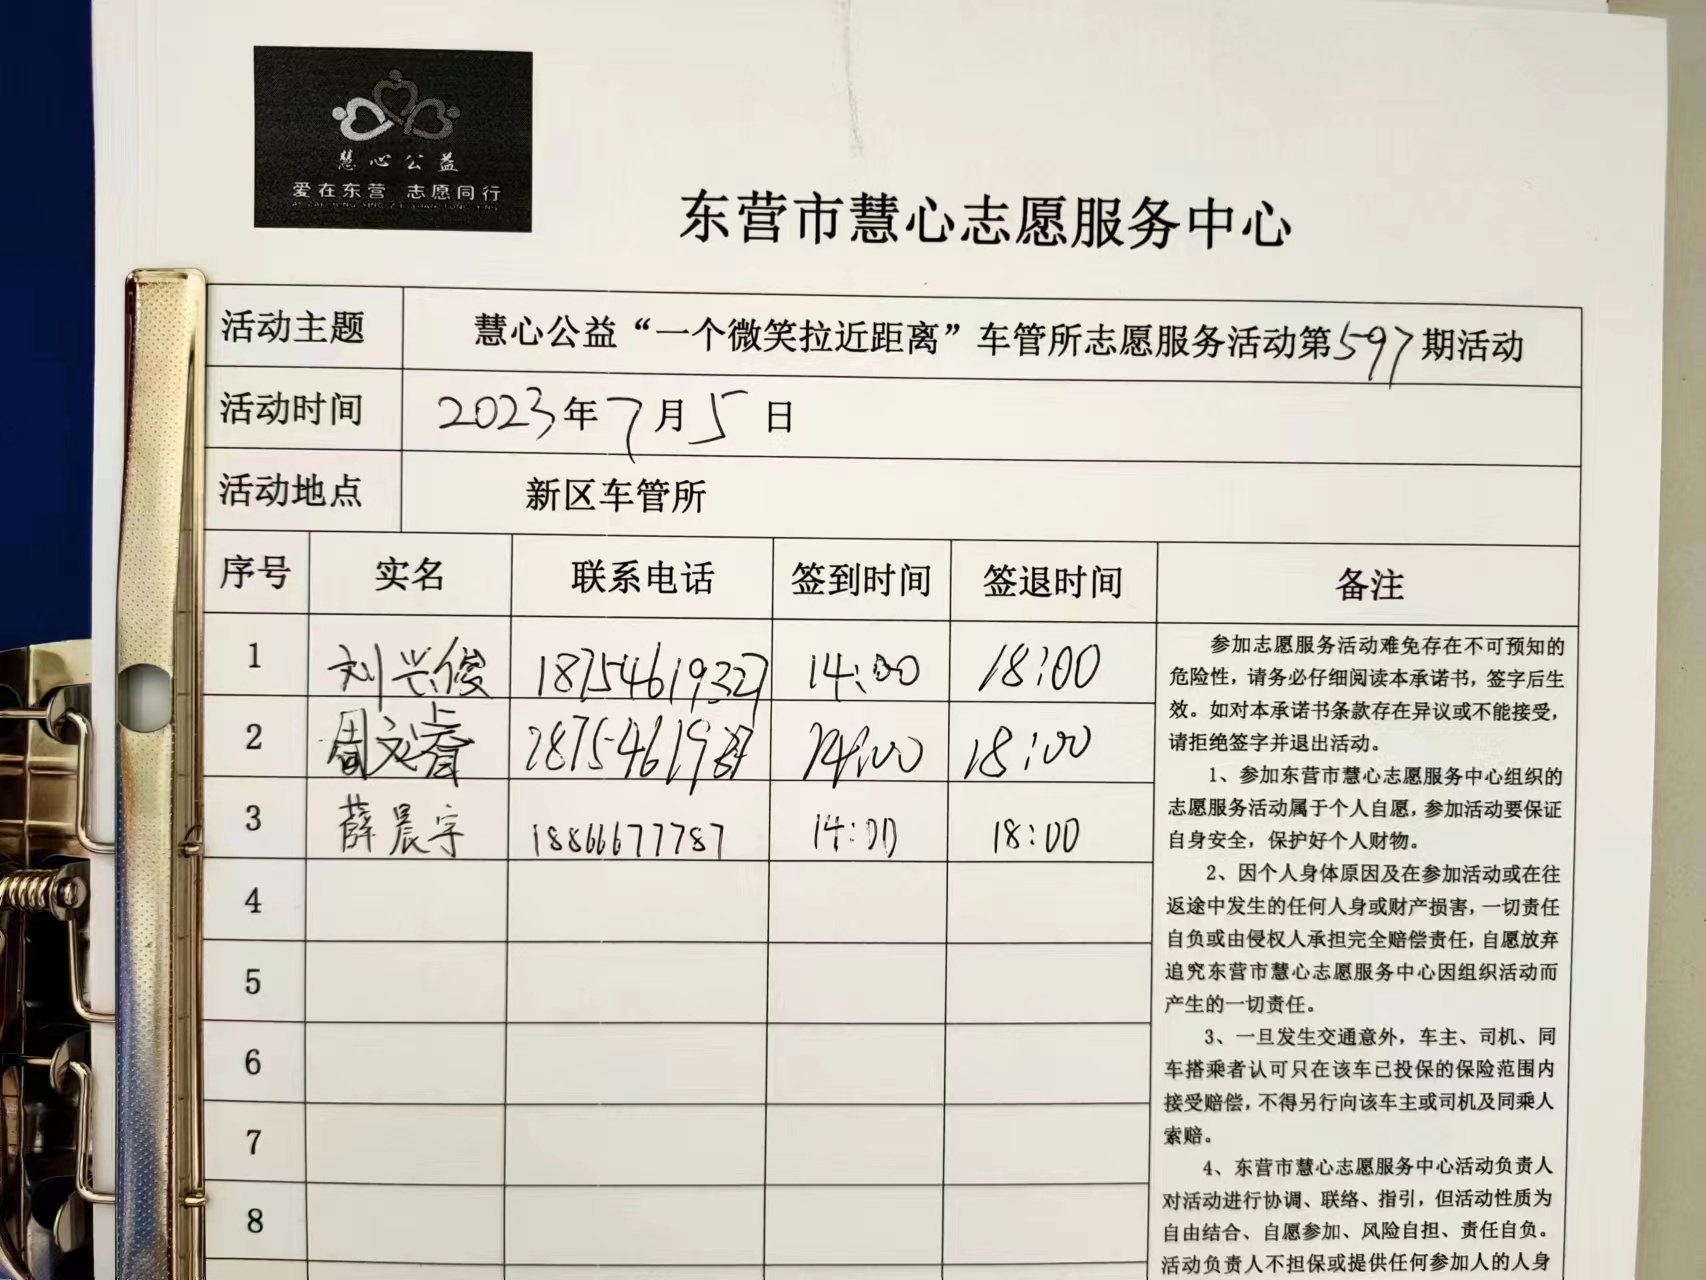 慧心公益
爱在东营 志愿同行
东营市慧心志愿服务中心
活动主题 慧心公益“一个微笑拉近距离”车管所志愿服务活动第597期活动
活动时间 2023年7月5日
活动地点 新区车管所
序号 实名 联系电话 签到时间 签退时间 备注
1 刘兴俊 18754619327 14:00 18:00
2 周文睿 14:00 18:00
3 薛晨宇 18866677787 14:00 18:00
4
5
6
7
8
参加志愿服务活动难免存在不可预知的
危险性，请务必仔细阅读本承诺书，签字后生
效。如对本承诺书条款存在异议或不能接受，
请拒绝签字并退出活动。
1、参加东营市慧心志愿服务中心组织的
志愿服务活动属于个人自愿，参加活动要保证
自身安全，保护好个人财物。
2、因个人身体原因及在参加活动或在往
返途中发生的任何人身或财产损害，一切责任
自负或由侵权人承担完全赔偿责任，自愿放弃
追究东营市慧心志愿服务中心因组织活动而
产生的一切责任。
3、一旦发生交通意外，车主、司机、同
车搭乘者认可只在该车已投保的保险范围内
接受赔偿，不得另行向该车主或司机及同乘人
索赔。
4、东营市慧心志愿服务中心活动负责人
对活动进行协调、联络、指引，但活动性质为
自由结合、自愿参加、风险自担、责任自负。
活动负责人不担保或提供任何参加人的人身